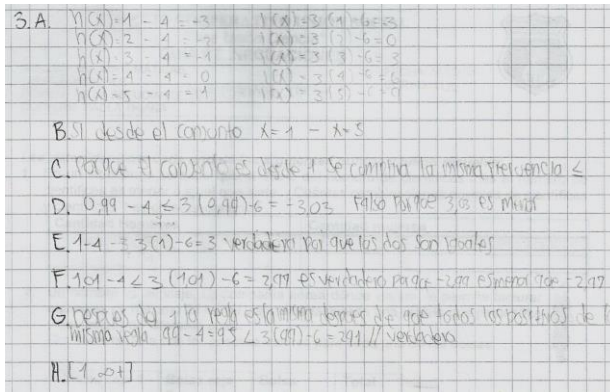 3.A. h(x)=1 - 4 = -3 i(x)=3(1)-6=-3
h(x)=2 - 4 = -2 i(x)=3(2)-6=0
h(x)=3 - 4 = -1 i(x)=3(3)-6=3
h(x)=4 - 4 = 0 i(x)=3(4)-6=6
h(x)=5 - 4 = 1 i(x)=3(5)-6=9
B. Si desde el comunto x=1 - x=5
C. Porque el conjunto es desde 1 se cumpliva la misma frecuencia ≤
D. 0,99 - 4 ≤ 3(0,99)-6 = -3,03 Falso porque 3,03 es menor
E. 1-4 = 3(1)-6=3 verdadero por que los dos son iguales
F. 1,01-4 < 3(1,01)-6=2,97 es verdadero porque -2,99 es menor que -2,97
G. Despues del 1 la regla es la misma despues de que todos los positivos de l
misma regla 99-4=95 < 3(99)-6=291 // verdadero
H. [1,∞+]